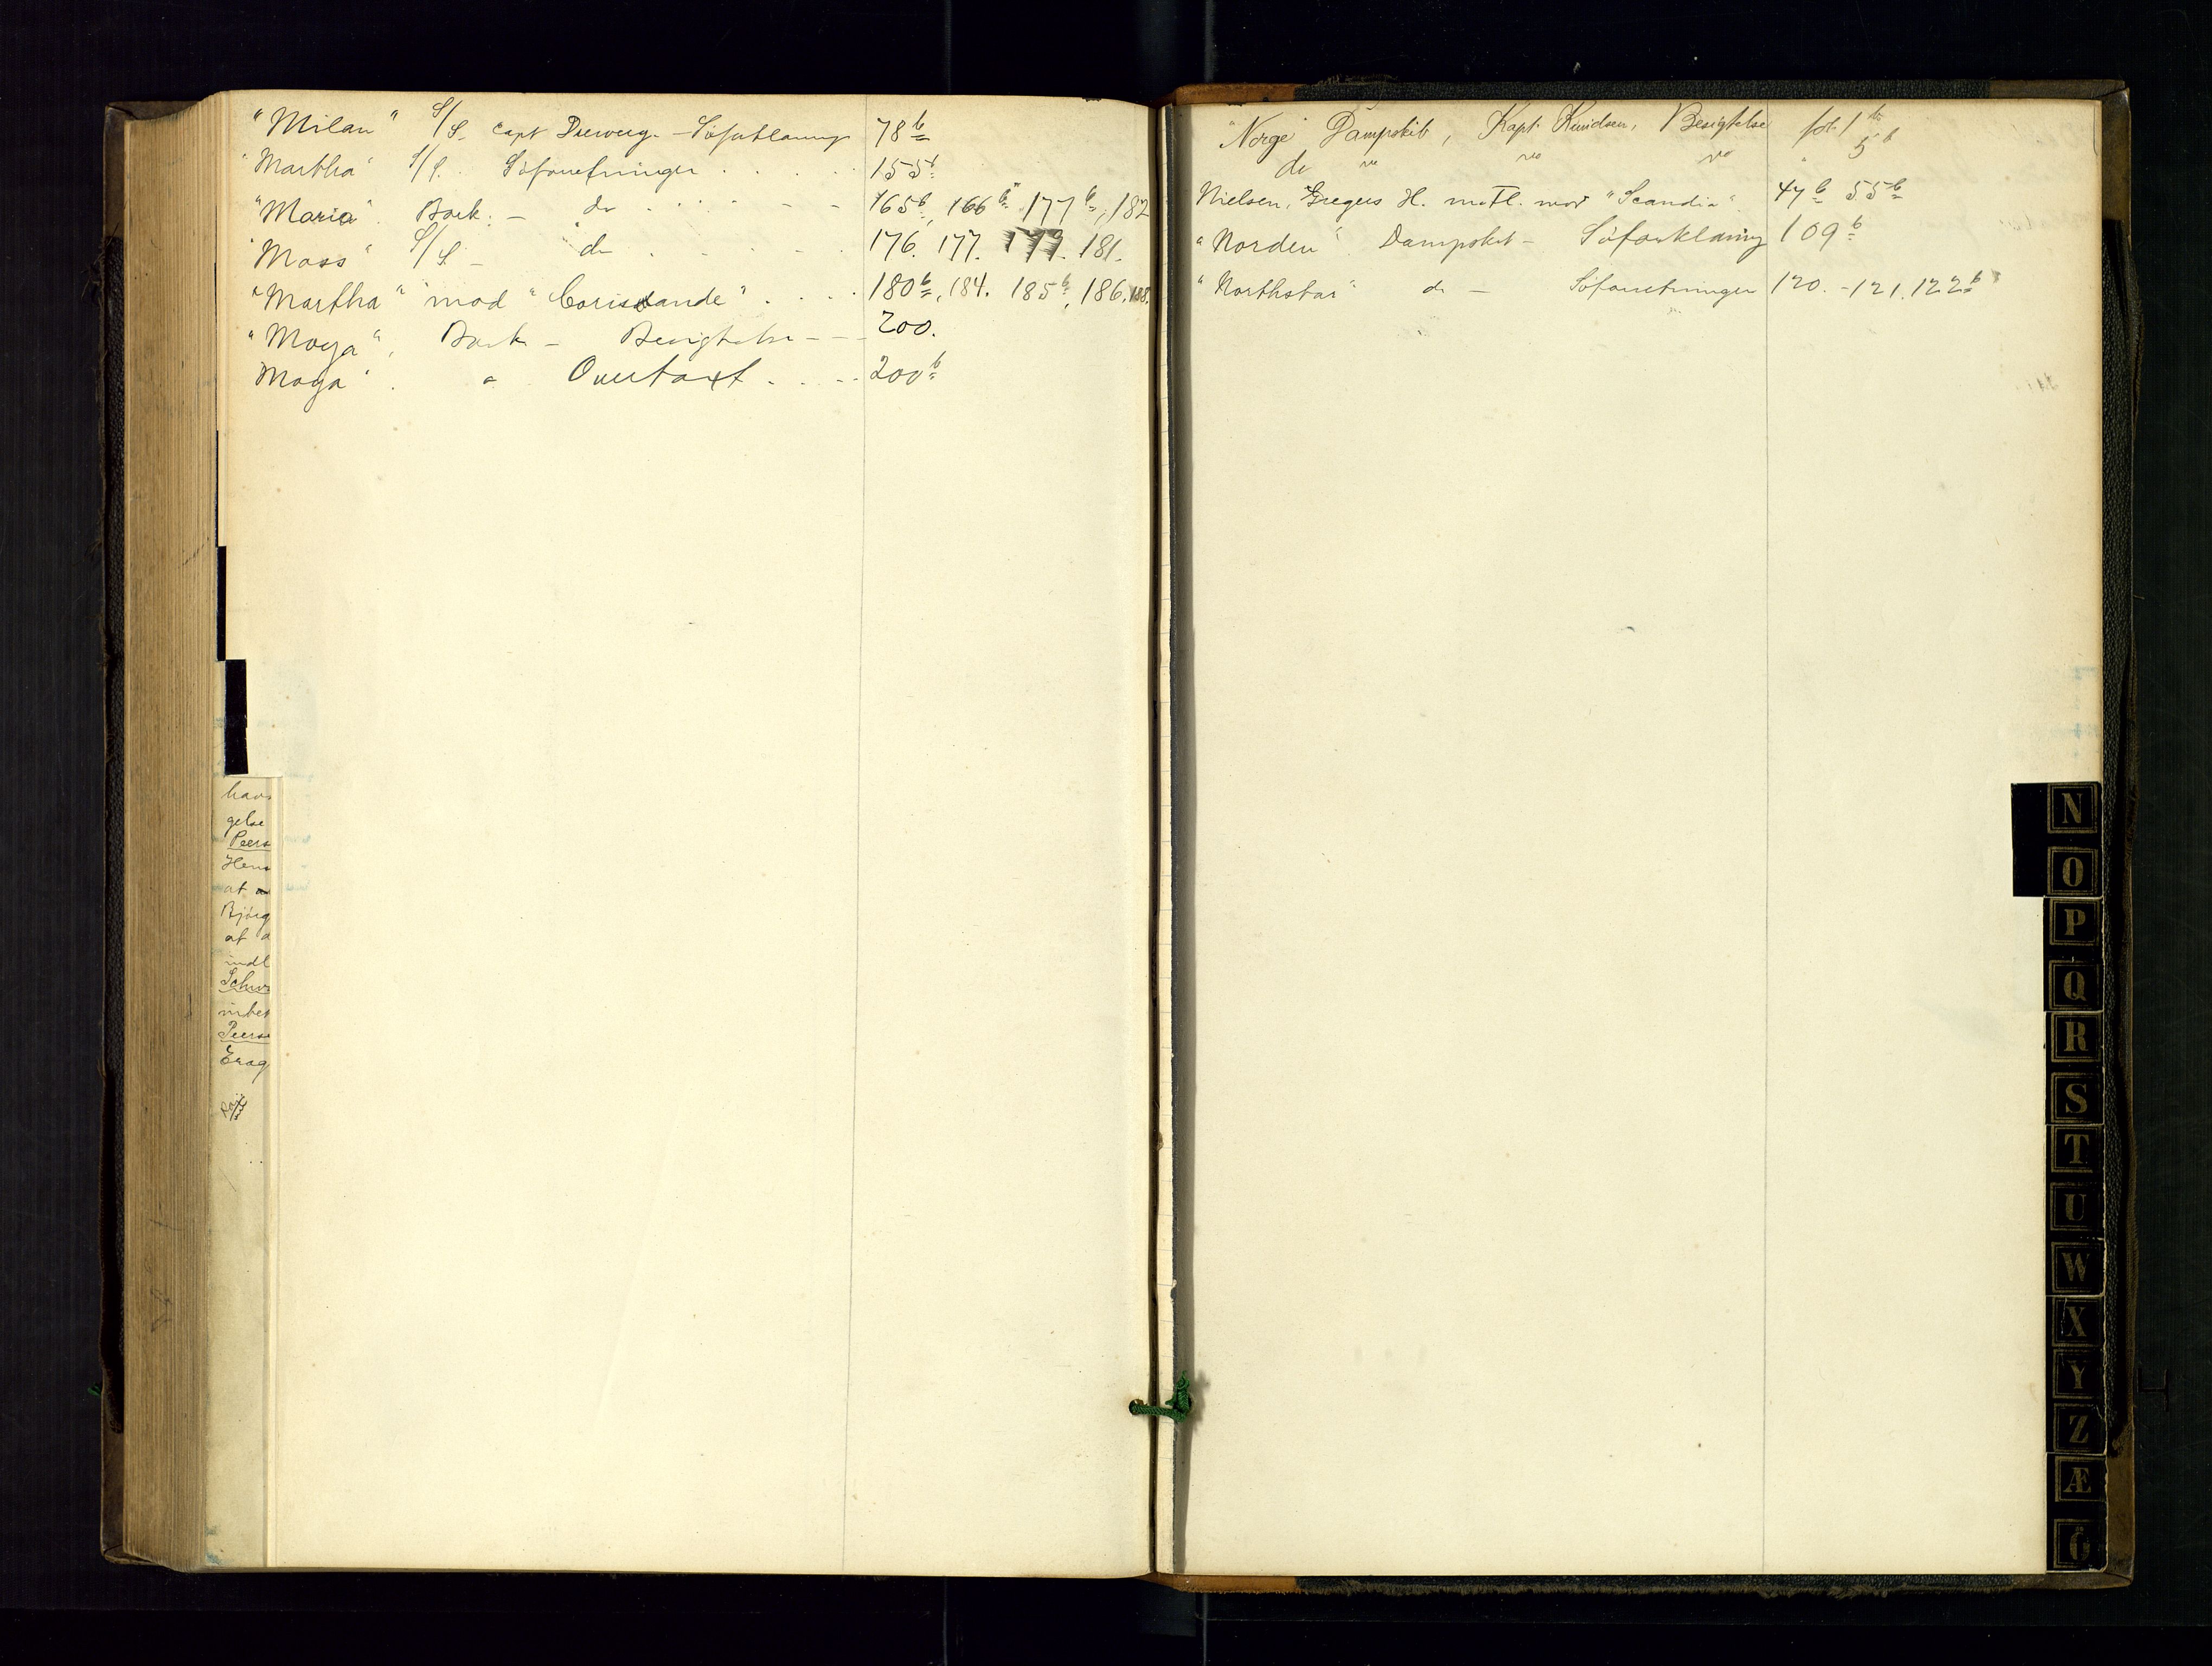 "Milan" S/S. Capt Søforklaring 78b
"Martha" S/S. Søforretninger 155b
"Maria" Bark. - do 165b, 166b 177b, 182
"Moss" S/S - do 176. 177. 179. 181.
"Martha" mod "Corisande" 180b, 184. 185b, 186. 188.
"Moya", Bark - Besigtelse - - - 200.
"Moya" . " Overtaxt . . . - 200b
hav
gelse
Peers
Hen
at
Bjørg
at a
indl
Schw
Peers
N
O
P
Q
R
S
T
U
W
X
Y
Z
Æ
Ö
"Norge" Dampskib, Kapt. Knudsen, Besigtelse fol. 1b
do " " " " 5b
Nielsen, Gregers H. m. Fl. mod "Scandia" 47b 55b
"Norden" Dampskib - Søforklaring 109b
"Northstar" do - Søforretninger 120. - 121. 122b